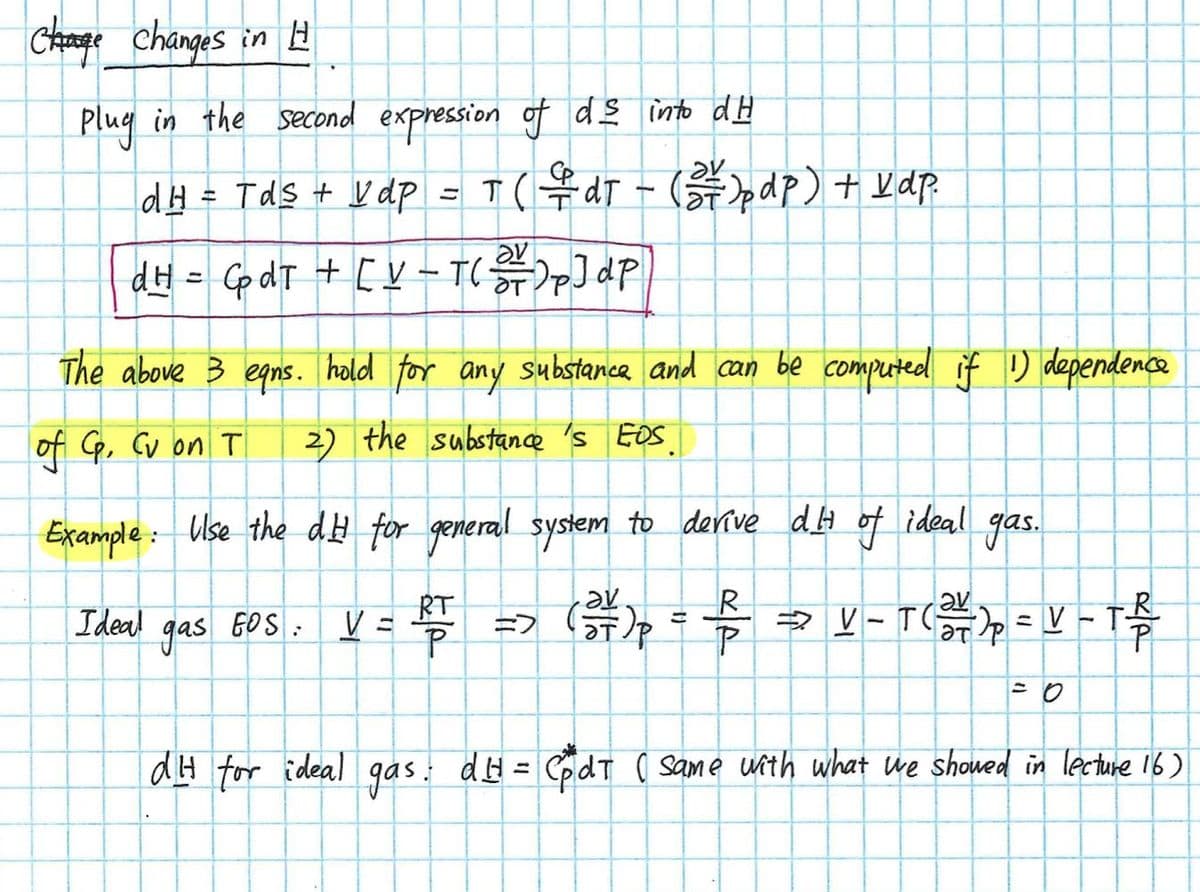 Change Changes in H̲
Plug in the second expression of dS̲ into dH̲
dH̲ = TdS̲ + V̲dP = T ( Cp/T dT - (∂V̲/∂T)p dP ) + V̲dP.
dH̲ = Cp dT + [ V̲ - T(∂V̲/∂T)p ] dP
The above 3 eqns. hold for any substance and can be computed if 1) dependence
of Cp, Cv on T 2) the substance 's EOS.
Example: Use the dH̲ for general system to derive dH̲ of ideal gas.
Ideal gas EOS: V̲ = RT/P => (∂V̲/∂T)p = R/P => V̲ - T(∂V̲/∂T)p = V̲ - T R/P
= 0
dH̲ for ideal gas: dH̲ = Cp* dT ( Same with what we showed in lecture 16)